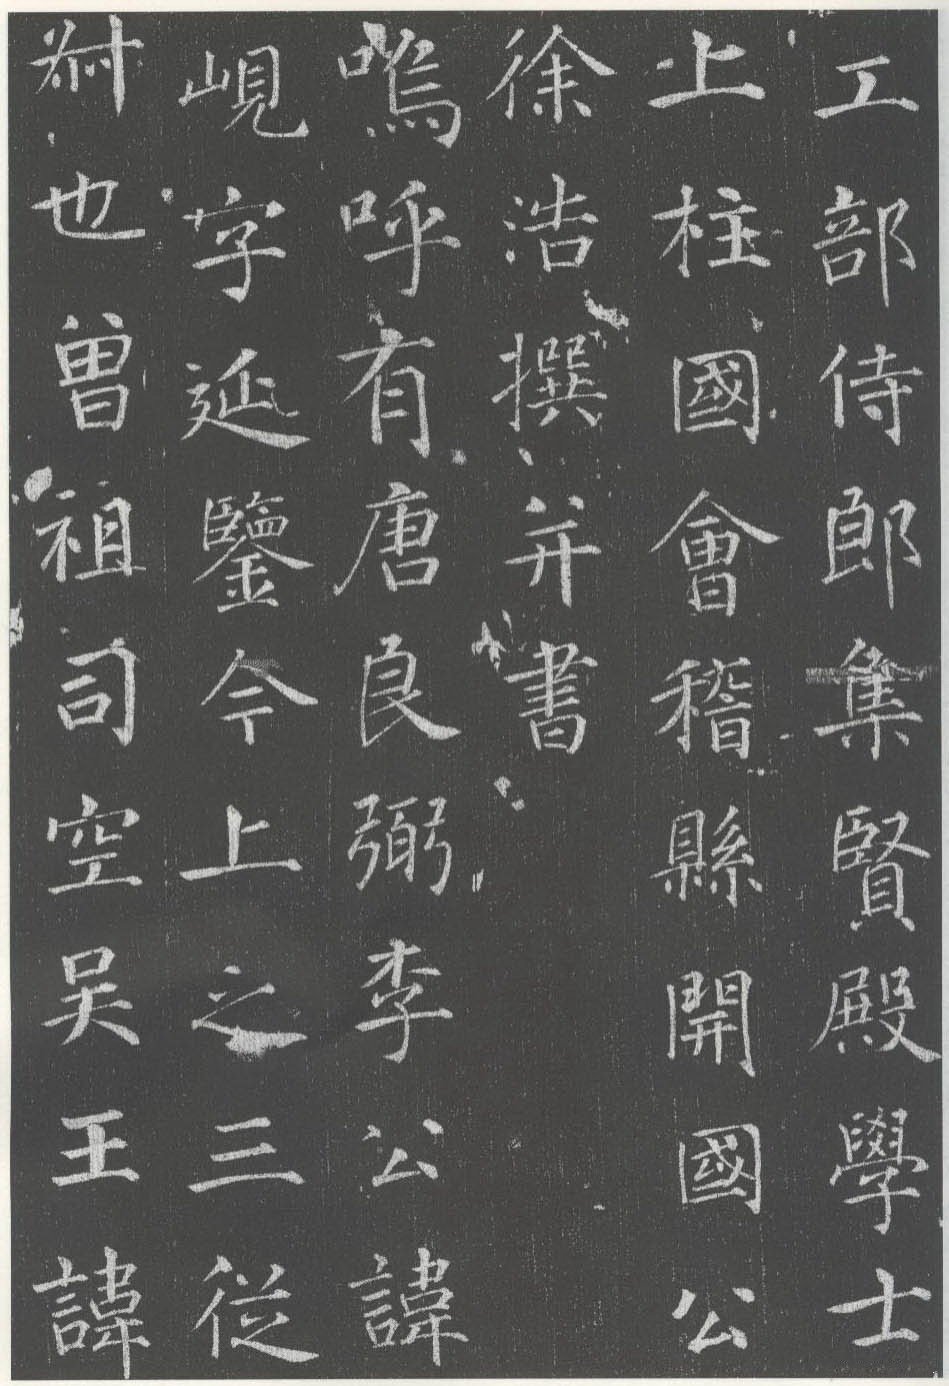 工部侍郎集賢殿學士
上柱國會稽縣開國公
徐浩撰并書
嗚呼有唐良弼李公諱
峴字延鑒今上之三從
叔也曽祖司空吴王諱